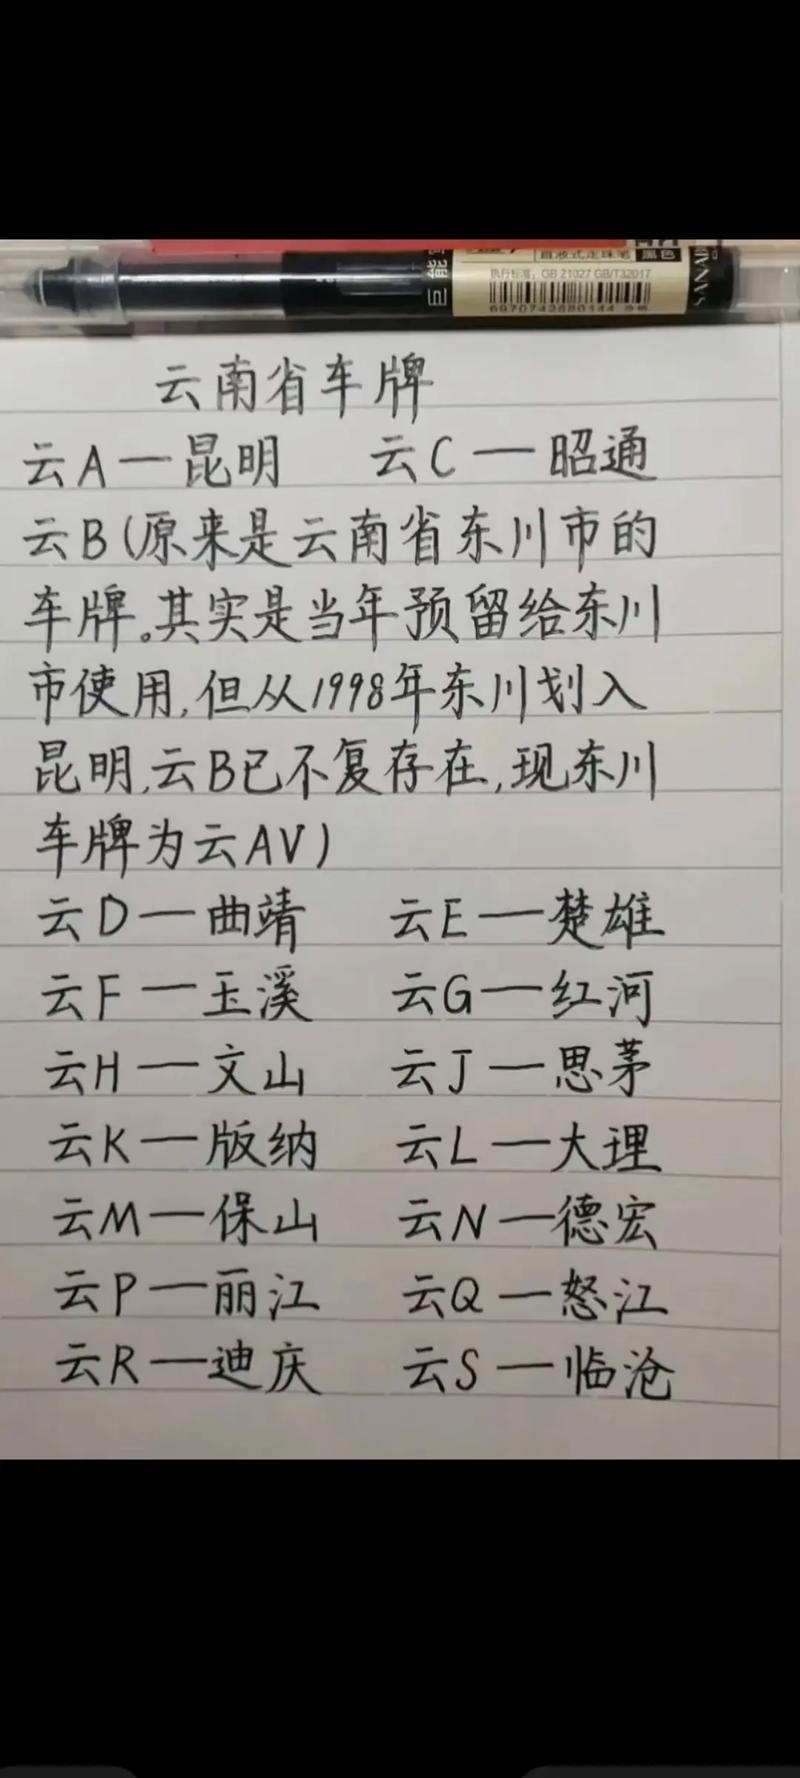 巨能
直液式走珠笔 黑色
执行标准: GB 21027 GB/T32017
云南省车牌
云A—昆明 云C—昭通
云B(原来是云南省东川市的
车牌。其实是当年预留给东川
市使用,但从1998年东川划入
昆明,云B已不复存在,现东川
车牌为云AV)
云D—曲靖 云E—楚雄
云F—玉溪 云G—红河
云H—文山 云J—思茅
云K—版纳 云L—大理
云M—保山 云N—德宏
云P—丽江 云Q—怒江
云R—迪庆 云S—临沧